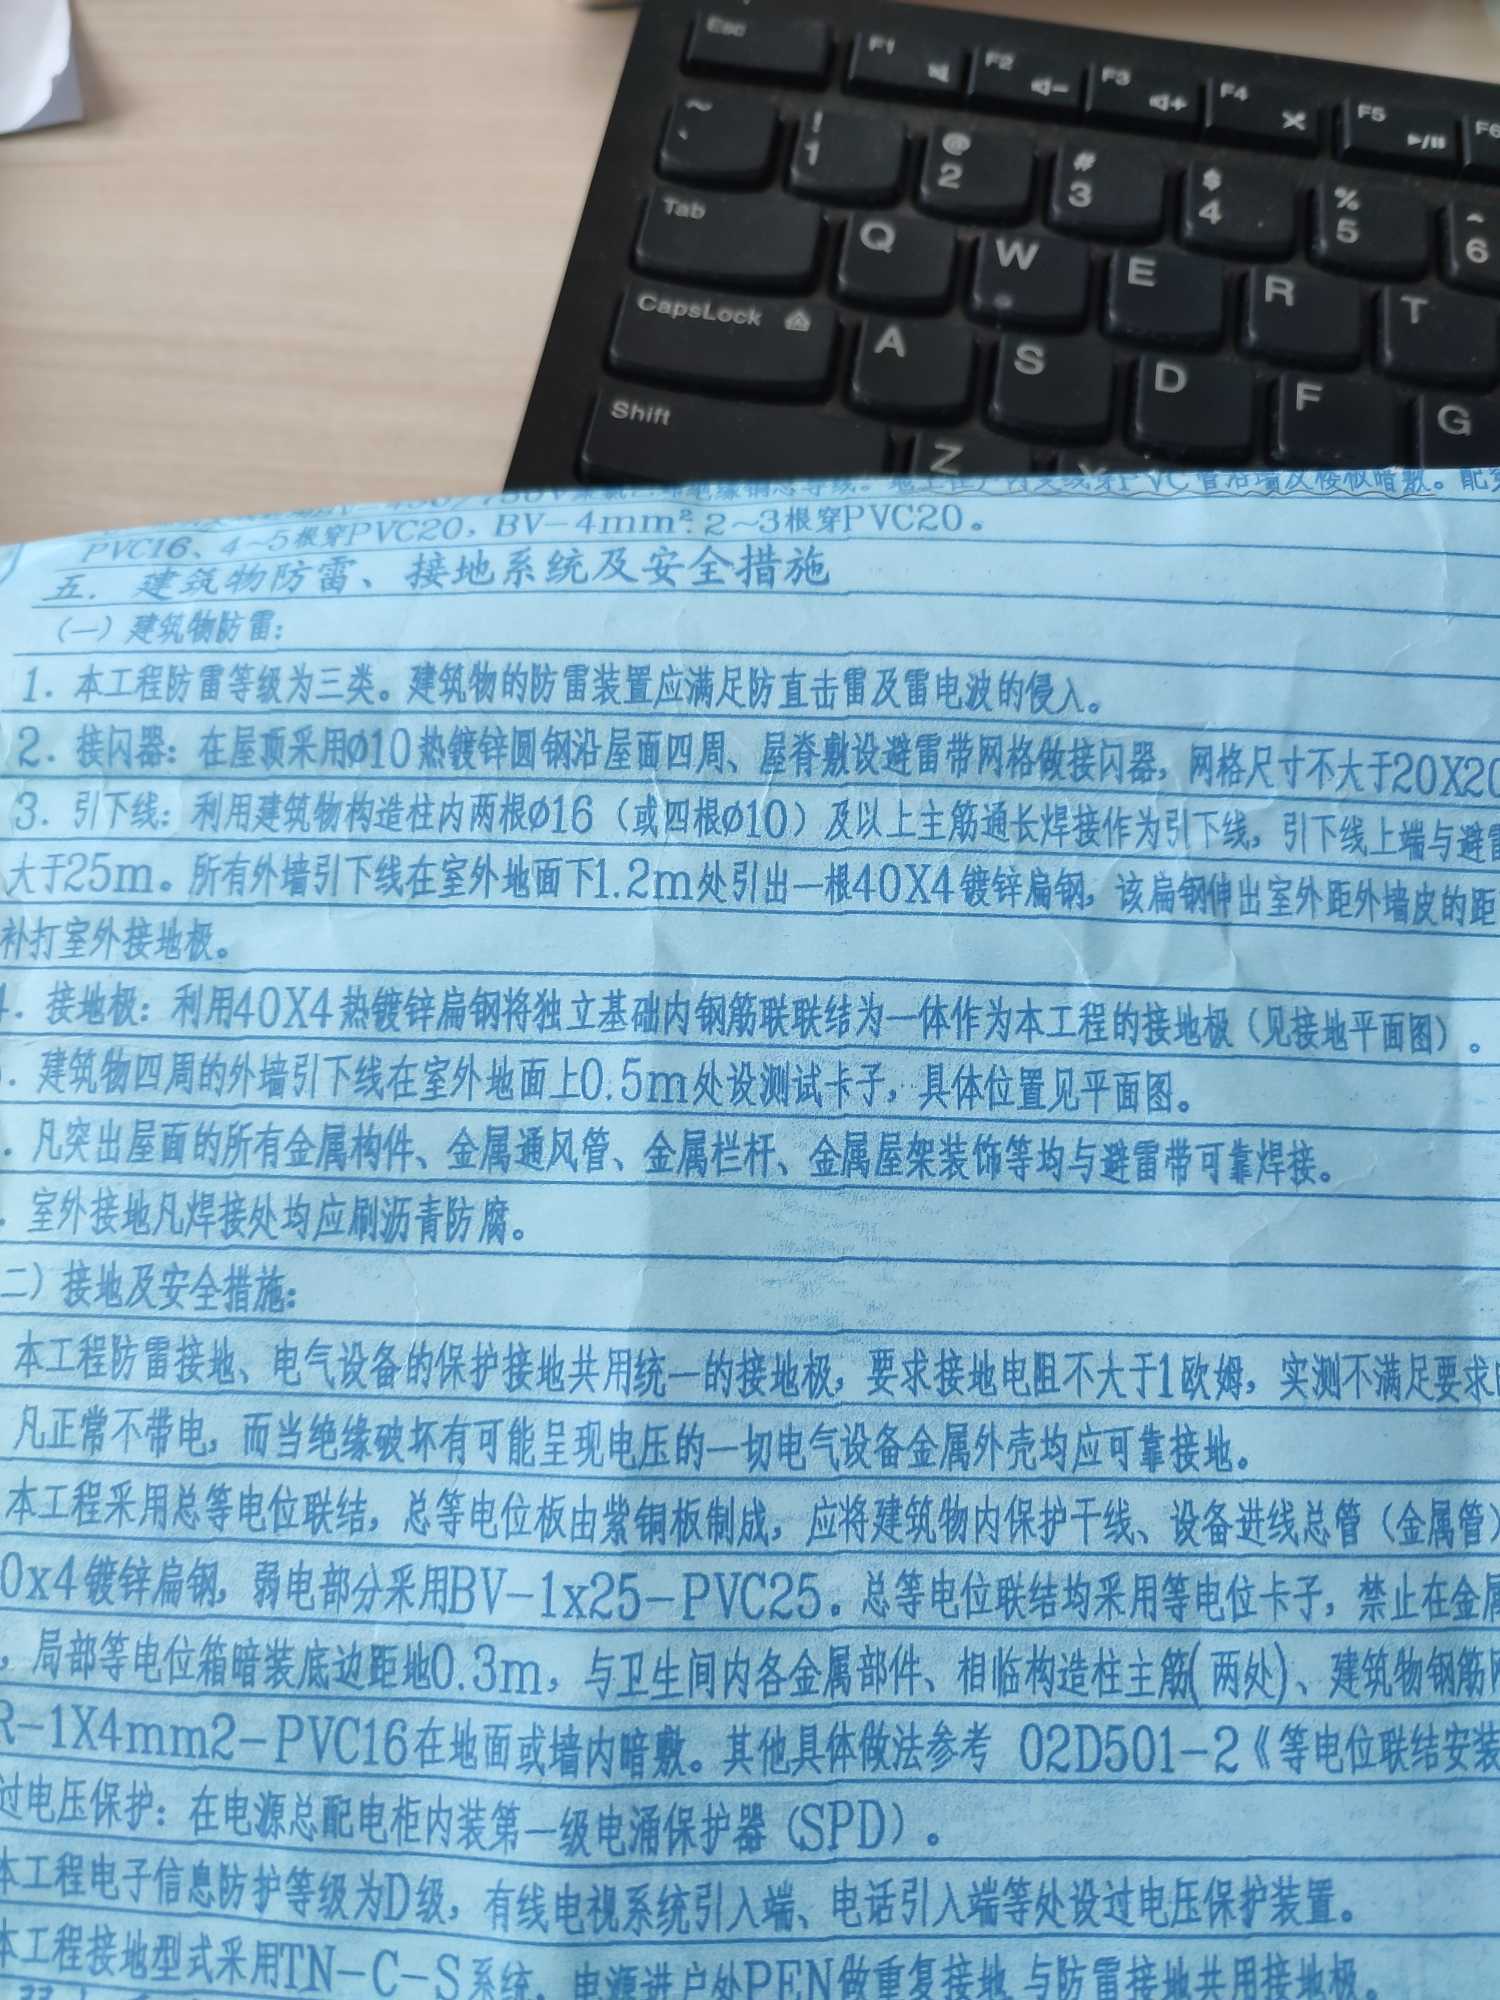 Esc F1 F2 F3 F4 F5 F6
~ ` ! 1 @ 2 # 3 $ 4 % 5 ^ 6
Tab Q W E R T
CapsLock A S D F G
Shift Z
PVC16、4~5根穿PVC20，BV-4mm²:2~3根穿PVC20。
五. 建筑物防雷、接地系统及安全措施
(一) 建筑物防雷:
1. 本工程防雷等级为三类。建筑物的防雷装置应满足防直击雷及雷电波的侵入。
2. 接闪器: 在屋顶采用ø10热镀锌圆钢沿屋面四周、屋脊敷设避雷带网格做接闪器，网格尺寸不大于20X20
3. 引下线: 利用建筑物构造柱内两根ø16（或四根ø10）及以上主筋通长焊接作为引下线，引下线上端与避雷
大于25m。所有外墙引下线在室外地面下1.2m处引出一根40X4镀锌扁钢，该扁钢伸出室外距外墙皮的距
补打室外接地极。
4. 接地极: 利用40X4热镀锌扁钢将独立基础内钢筋联联结为一体作为本工程的接地极（见接地平面图）。
. 建筑物四周的外墙引下线在室外地面上0.5m处设测试卡子，具体位置见平面图。
. 凡突出屋面的所有金属构件、金属通风管、金属栏杆、金属屋架装饰等均与避雷带可靠焊接。
. 室外接地凡焊接处均应刷沥青防腐。
二）接地及安全措施:
本工程防雷接地、电气设备的保护接地共用统一的接地极，要求接地电阻不大于1欧姆，实测不满足要求
凡正常不带电，而当绝缘破坏有可能呈现电压的一切电气设备金属外壳均应可靠接地。
本工程采用总等电位联结，总等电位板由紫铜板制成，应将建筑物内保护干线、设备进线总管（金属管）
0x4镀锌扁钢，弱电部分采用BV-1x25-PVC25。总等电位联结均采用等电位卡子，禁止在金属
，局部等电位箱暗装底边距地0.3m，与卫生间内各金属部件、相临构造柱主筋(两处)、建筑物钢筋网
R-1X4mm2-PVC16在地面或墙内暗敷。其他具体做法参考 02D501-2《等电位联结安装
过电压保护: 在电源总配电柜内装第一级电涌保护器（SPD）。
本工程电子信息防护等级为D级，有线电视系统引入端、电话引入端等处设过电压保护装置。
本工程接地型式采用TN-C-S系统，电源进户处PEN做重复接地,与防雷接地共用接地极。